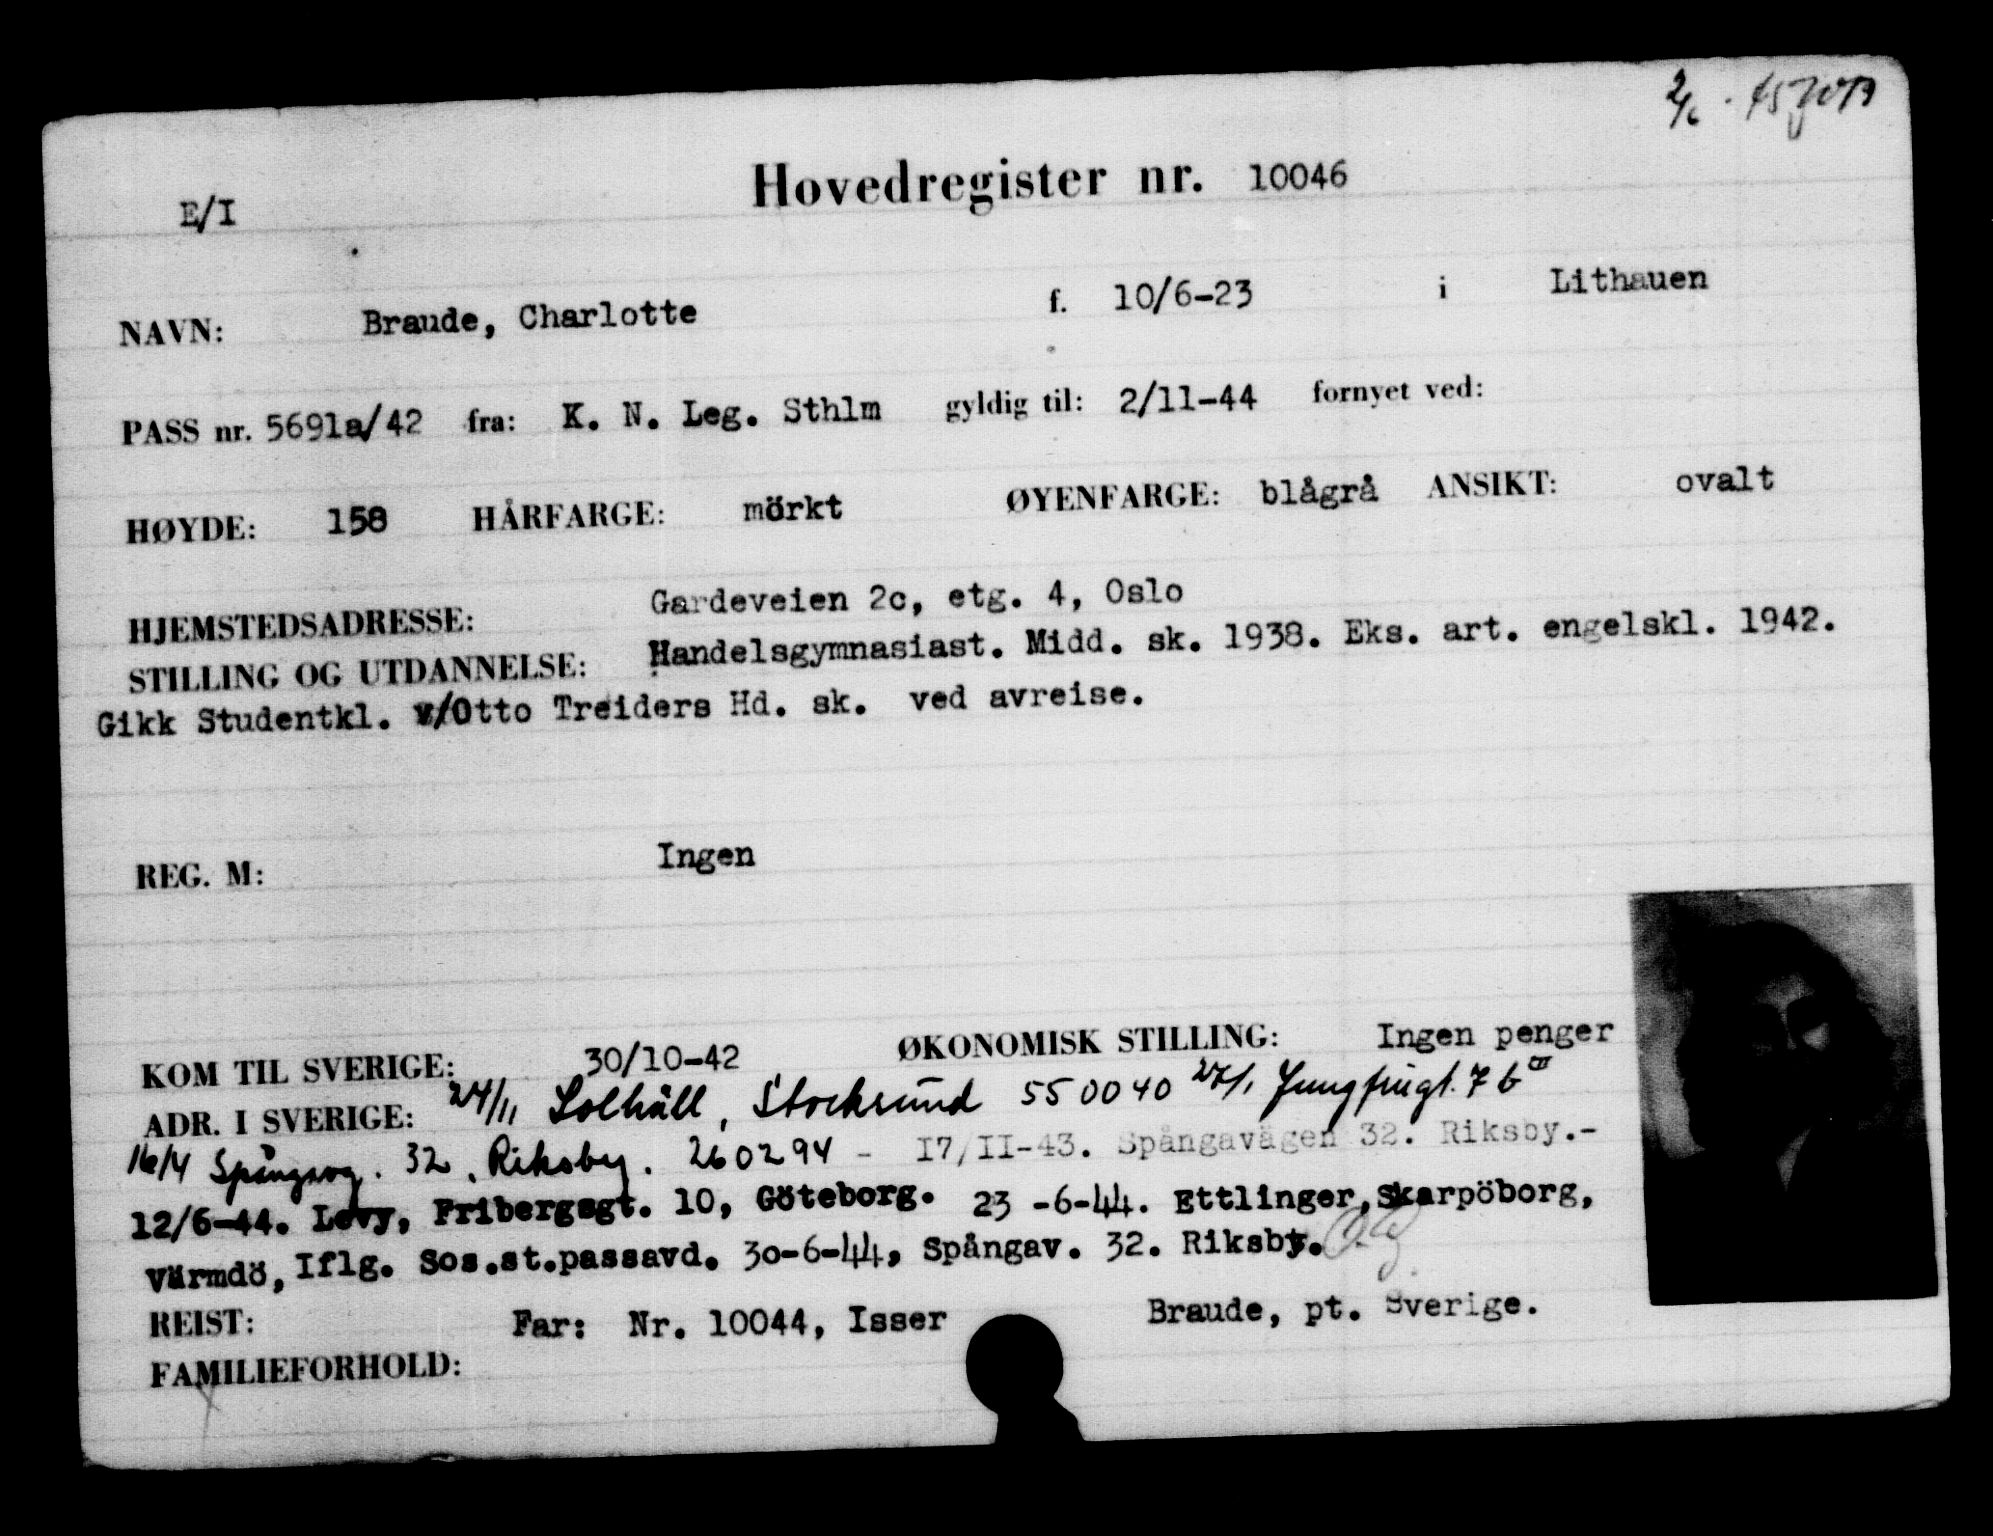 2/6 · 45
E/I Hovedregister nr. 10046
NAVN: Braude, Charlotte f. 10/6-23 i Lithauen
PASS nr. 5691a/42 fra: K. N. Leg. Sthlm gyldig til: 2/11-44 fornyet ved:
HØYDE: 158 HÅRFARGE: mörkt ØYENFARGE: blågrå ANSIKT: ovalt
HJEMSTEDSADRESSE: Gardeveien 2c, etg. 4, Oslo
STILLING OG UTDANNELSE: Handelsgymnasiast. Midd. sk. 1938. Eks. art. engelskl. 1942.
Gikk Studentkl. v/Otto Treiders Hd. sk. ved avreise.
REG. M: Ingen
KOM TIL SVERIGE: 30/10-42 ØKONOMISK STILLING: Ingen penger
ADR. I SVERIGE: 24/11 Solhäll, Stocksund 550040 27/1 Jungfrugt. 7 b III
16/4 Spångavg. 32, Riksby. 260294 - 17/II-43. Spångavägen 32. Riksby.-
12/6-44. Levy, Fribergsgt. 10, Göteborg. 23 -6-44. Ettlinger, Skarpöborg,
Värmdö, Iflg. Sos.st.passavd. 30-6-44, Spångav. 32. Riksby.
REIST: Far: Nr. 10044, Isser Braude, pt. Sverige.
FAMILIEFORHOLD: